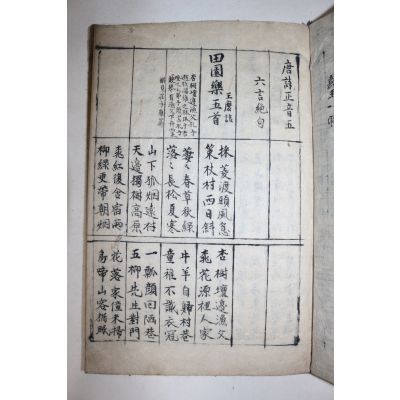 唐詩正音五
六言絶句
田園樂五首
王摩詰
採菱渡頭風急
策杖村西日斜
杏樹壇邊漁父
桃花源裡人家
萋〻春草秋綠
落〻長松夏寒
牛羊自歸村巷
童稚不識衣冠
山下孤烟遠村
天邊獨樹高原
一瓢顔回陋巷
五柳先生對門
桃紅復含宿雨
柳綠更帶朝烟
花落家僮未掃
鳥啼山客猶眠